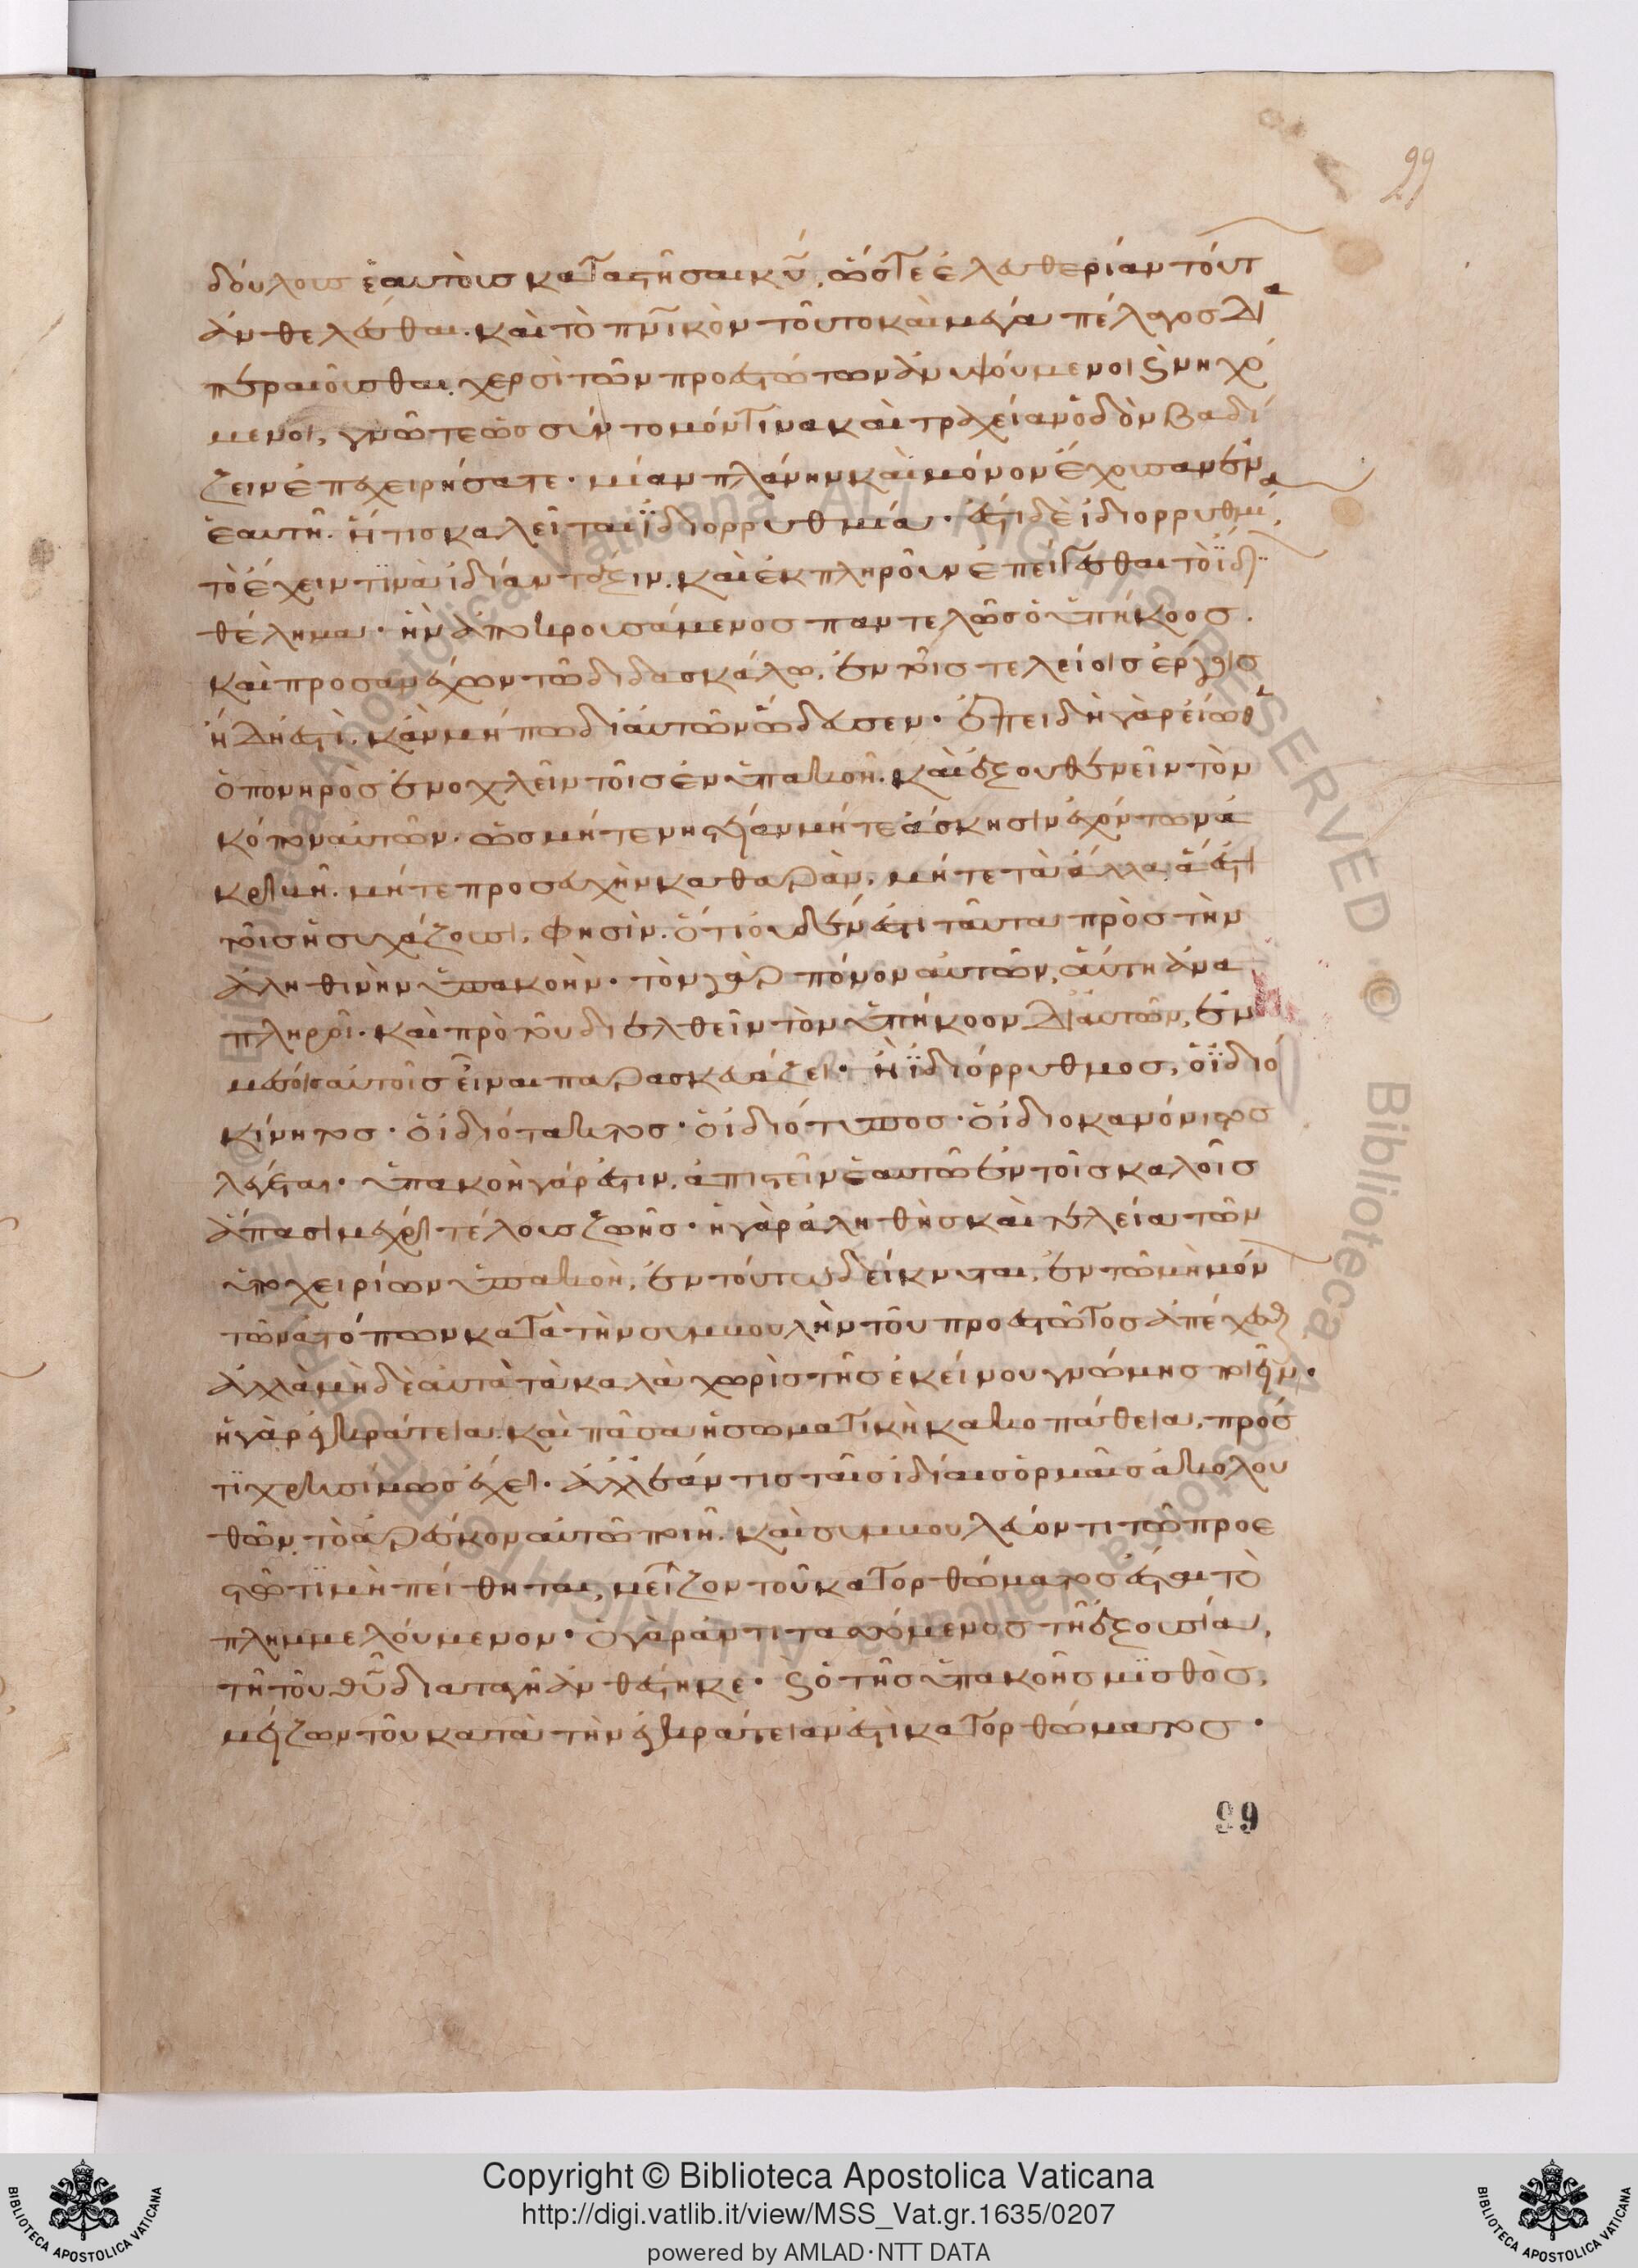 99
δούλους ἑαυτοὺς καταστῆσαι κῦ, ὥστε ἐλευθερίαν τούτ
ἀνθελέσθαι. καὶ τὸ πνῖκὸν τοῦτο καὶ μέγα πέλαγος δϊα
περαιοῦσθαι χερσὶ τῶν προεστώτων ἀνυψούμενοι ϗ νηχό
μενοι, γνῶτε ὡς σύντομόν τινα καὶ τραχεῖαν ὁδὸν βαδί
ζειν ἐπεχειρήσατε · μίαν πλάνην καὶ μόνον ἔχουσαν ἐν
ἑαυτῆ. ἥτις καλεῖται ἰδιορρυθμία · ἔστι δὲ ἰδιορρυθμί
τὸ ἔχειν τινὰ ἰδίαν τάξιν. καὶ ἐκπληροῦν ἐπείγεσθαι τὸ ἴδι
θέλημα · ἣν ἀποκρουσάμενος παντελῶς ὁ ὑπήκοος.
καὶ προσανέχων τῶ διδασκάλω, ἐν τοῖς τελείοις ἔργοις
ἤδη ἐστὶ. κἂν μήπω δι αὐτῶν ὥδευσεν · ἐπειδὴ γὰρ εἴωθ
ὁ πονηρὸς ἐνοχλεῖν τοῖς ἐν ὑπακοῆ. καὶ ἐξουθενεῖν τὸν
κόπον αὐτῶν. ὡς μήτε νηστείαν μήτε ἄσκησιν ἐχόντων ἀ
κριβῆ. μήτε προσευχὴν καθαρὰν, μήτε τὰ ἄλλα ἅ ἐστι
τοῖς ἡσυχάζουσι, φησὶν. ὅτι οὐδέν ἐστι ταῦτα πρὸς τὴν
ἀληθινὴν ὑπακοὴν · τὸν γὰρ πόνον αὐτῶν, αὕτη ἀνα
πληροῖ · καὶ πρὸ τοῦ διελθεῖν τὸν ὑπήκοον δι αὐτῶν, ἐν
μέσοις αὐτοῖς εἶναι παρασκευάζει · ἢ ἰδιόρρυθμος, ὁ ἰδιο
κίνητος · ὁ ἰδιότακτος · ὁ ἰδιότυπος · ὁ ἰδιοκανόνιστος
λέγεται · ὑπακοὴ γάρ ἐστιν, ἀπιστεῖν ἑαυτῶ ἐν τοῖς καλοῖς
ἅπασι μέχρι τέλους ζωῆς · ἡ γὰρ ἀληθὴς καὶ τελεία τῶν
ὑποχειρίων ὑπακοὴ, ἐν τούτω δείκνυται, ἐν τῶ μὴ μόν
τῶν ἀτόπων κατὰ τὴν συμβουλὴν τοῦ προεστῶτος ἀπέχεσθ
ἀλλὰ μηδὲ αὐτὰ τὰ καλὰ χωρὶς τῆς ἐκείνου γνώμης ποιεῖν ·
ἡ γὰρ ἐγκράτεια. καὶ πᾶσα ἡ σωματικὴ κακοπάθεια, πρός
τι χρησίμως ἔχει · ἀλλ ἐάν τις ταῖς ἰδίαις ὁρμαῖς ἀκολου
θῶν, τὸ ἀρέσκον αὐτῶ ποιῆ. καὶ συμβουλεύοντι τῶ προε
στῶτι μὴ πείθηται, μεῖζον τοῦ κατορθώματος ἔσται τὸ
πλημμελούμενον · ὁ γὰρ ἀντιτασσόμενος τῆ ἐξουσία,
τῆ τοῦ θῦ διαταγῆ ἀνθέστηκε · ϗ ὁ τῆς ὑπακοῆς μισθὸς,
μείζων τοῦ κατὰ τὴν ἐγκράτειαν ἐστὶ κατορθώματος ·
99
Copyright © Biblioteca Apostolica Vaticana
http://digi.vatlib.it/view/MSS_Vat.gr.1635/0207
powered by AMLAD·NTT DATA
BIBLIOTECA APOSTOLICA VATICANA
BIBLIOTECA APOSTOLICA VATICANA